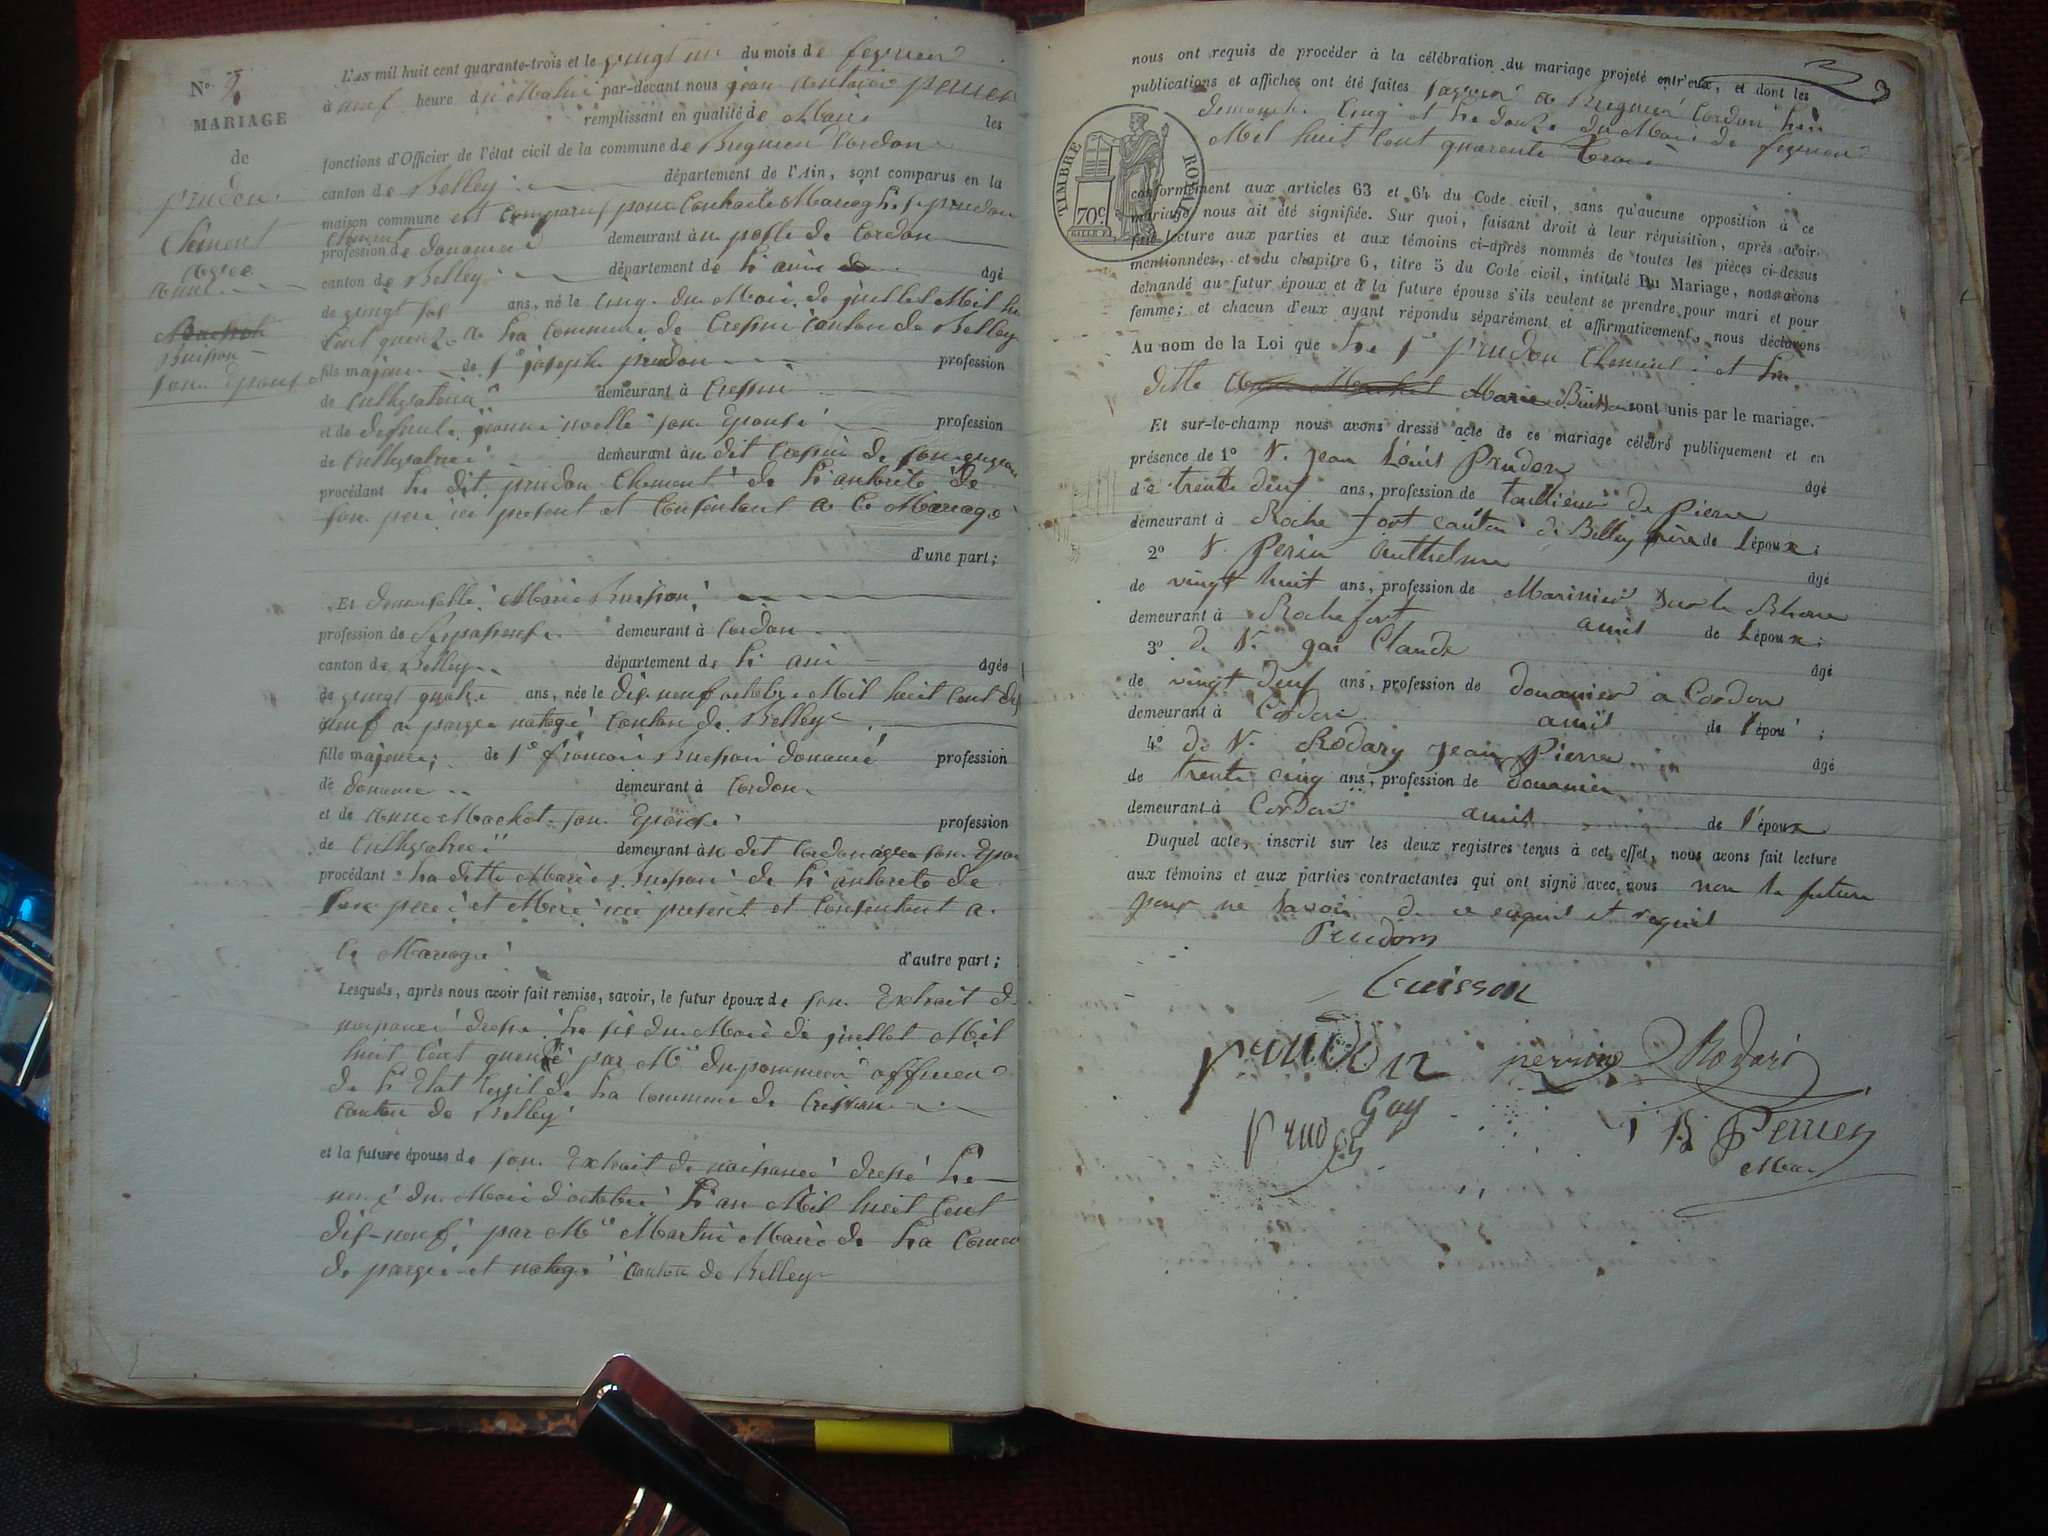 N° 3
MARIAGE
de
prudon
Clement
avec
anne
Buisson
sone Epouse
L'AN mil huit cent quarante-trois et le vingt un du mois de fevrier
à neuf heure du Matin par-devant nous jean antoine perrier
remplissant en qualité de Maire les
fonctions d'Officier de l'état civil de la commune de Bregnier Cordon
canton de Belley département de l'Ain, sont comparus en la
maison commune est Comparus pour Contracte Mariage le s. prudon
Clement
profession de douanier demeurant à u poste de Cordon
canton de Belley département de h ain âgé
de vingt set ans, né le Cinq du Mois de juillet Mil hu
Cent quenze a ha Commune de Cressin Canton de Belley
fils majeur de S. joseph prudon profession
de Culthivateur demeurant à Cressin
et de defunte jeanne noelle sone Epouse profession
de Culthivatrice demeurant à u dit Cressin de son vivant
procédant he dit prudon Clement de h'autorité de
sone pere ici present et Consentant a Ce Mariage
d'une part;
Et demoiselle Marie Buisson
profession de demeurant à Cordon
canton de Belley département de h ain âgée
de vingt quatre ans, née le dix neuf octobre Mil huit Cent dix
neuf a parves natage Canton de Belley
fille majeure; de S. francois Buisson douanie profession
de douane demeurant à Cordon
et de Anne Machet sone Epouse profession
de Culthivatrice demeurant à u dit Cordon avec sone Epou
procédant ha ditte Marie Buisson de h'autorite de
sone pere et Mere ici present et Consentant a
Ce Mariage d'autre part;
Lesquels, après nous avoir fait remise, savoir, le futur époux de sone Extrait de
naissance dressé he six du Mois de juillet Mil
huit Cent quenze par Mr duponmier officier
de h'Etat Civil de ha Commune de Cressin
Canton de Belley
et la future épouse de sone Extrait de naissance dressé he
du Mois d'octobre h'an Mil huit Cent
dix-neuf par Mr Martin Maire de ha Comm
de parves et natage Canton de Belley
3
nous ont requis de procéder à la célébration du mariage projeté entr'eux, et dont les
publications et affiches ont été faites a Bregnier Cordon hes
demanche Cinq et he douze du Mois de fevrier
Mil huit Cent quarente trois
TIMBRE ROYAL
70c
conformément aux articles 63 et 64 du Code civil, sans qu'aucune opposition à ce
mariage nous ait été signifiée. Sur quoi, faisant droit à leur réquisition, après avoir
fait lecture aux parties et aux témoins ci-après nommés de toutes les pièces ci-dessus
mentionnées, et du chapitre 6, titre 5 du Code civil, intitulé Du Mariage, nous avons
demandé au futur époux et à la future épouse s'ils veulent se prendre pour mari et pour
femme; et chacun d'eux ayant répondu séparément et affirmativement, nous déclarons
Au nom de la Loi que he s. prudon Clement et ha
ditte Marie Buisson sont unis par le mariage.
Et sur-le-champ nous avons dressé acte de ce mariage célébré publiquement et en
présence de 1° S. jean Louis Prudon âgé
de trente deux ans, profession de tailleur de Pierre
demeurant à Rochefort canton de Belley frère de l'époux;
2° S. Perin Anthelme âgé
de vingt huit ans, profession de Marinier sur le Rhone
demeurant à Rochefort amis de l'époux;
3° de S. gai Claude âgé
de vingt deux ans, profession de douanier a Cordon
demeurant à Cordon amis de l'épou ;
4° de S. Rodary jean Pierre âgé
de trente cinq ans, profession de douanier
demeurant à Cordon amis de l'époux
Duquel acte, inscrit sur les deux registres tenus à cet effet, nous avons fait lecture
aux témoins et aux parties contractantes qui ont signé avec nous non la future
pour ne savoir de ce enquis et requis
Prudon
buisson
prudon perrin Rodari
Gay
prudon Perrier
Maire